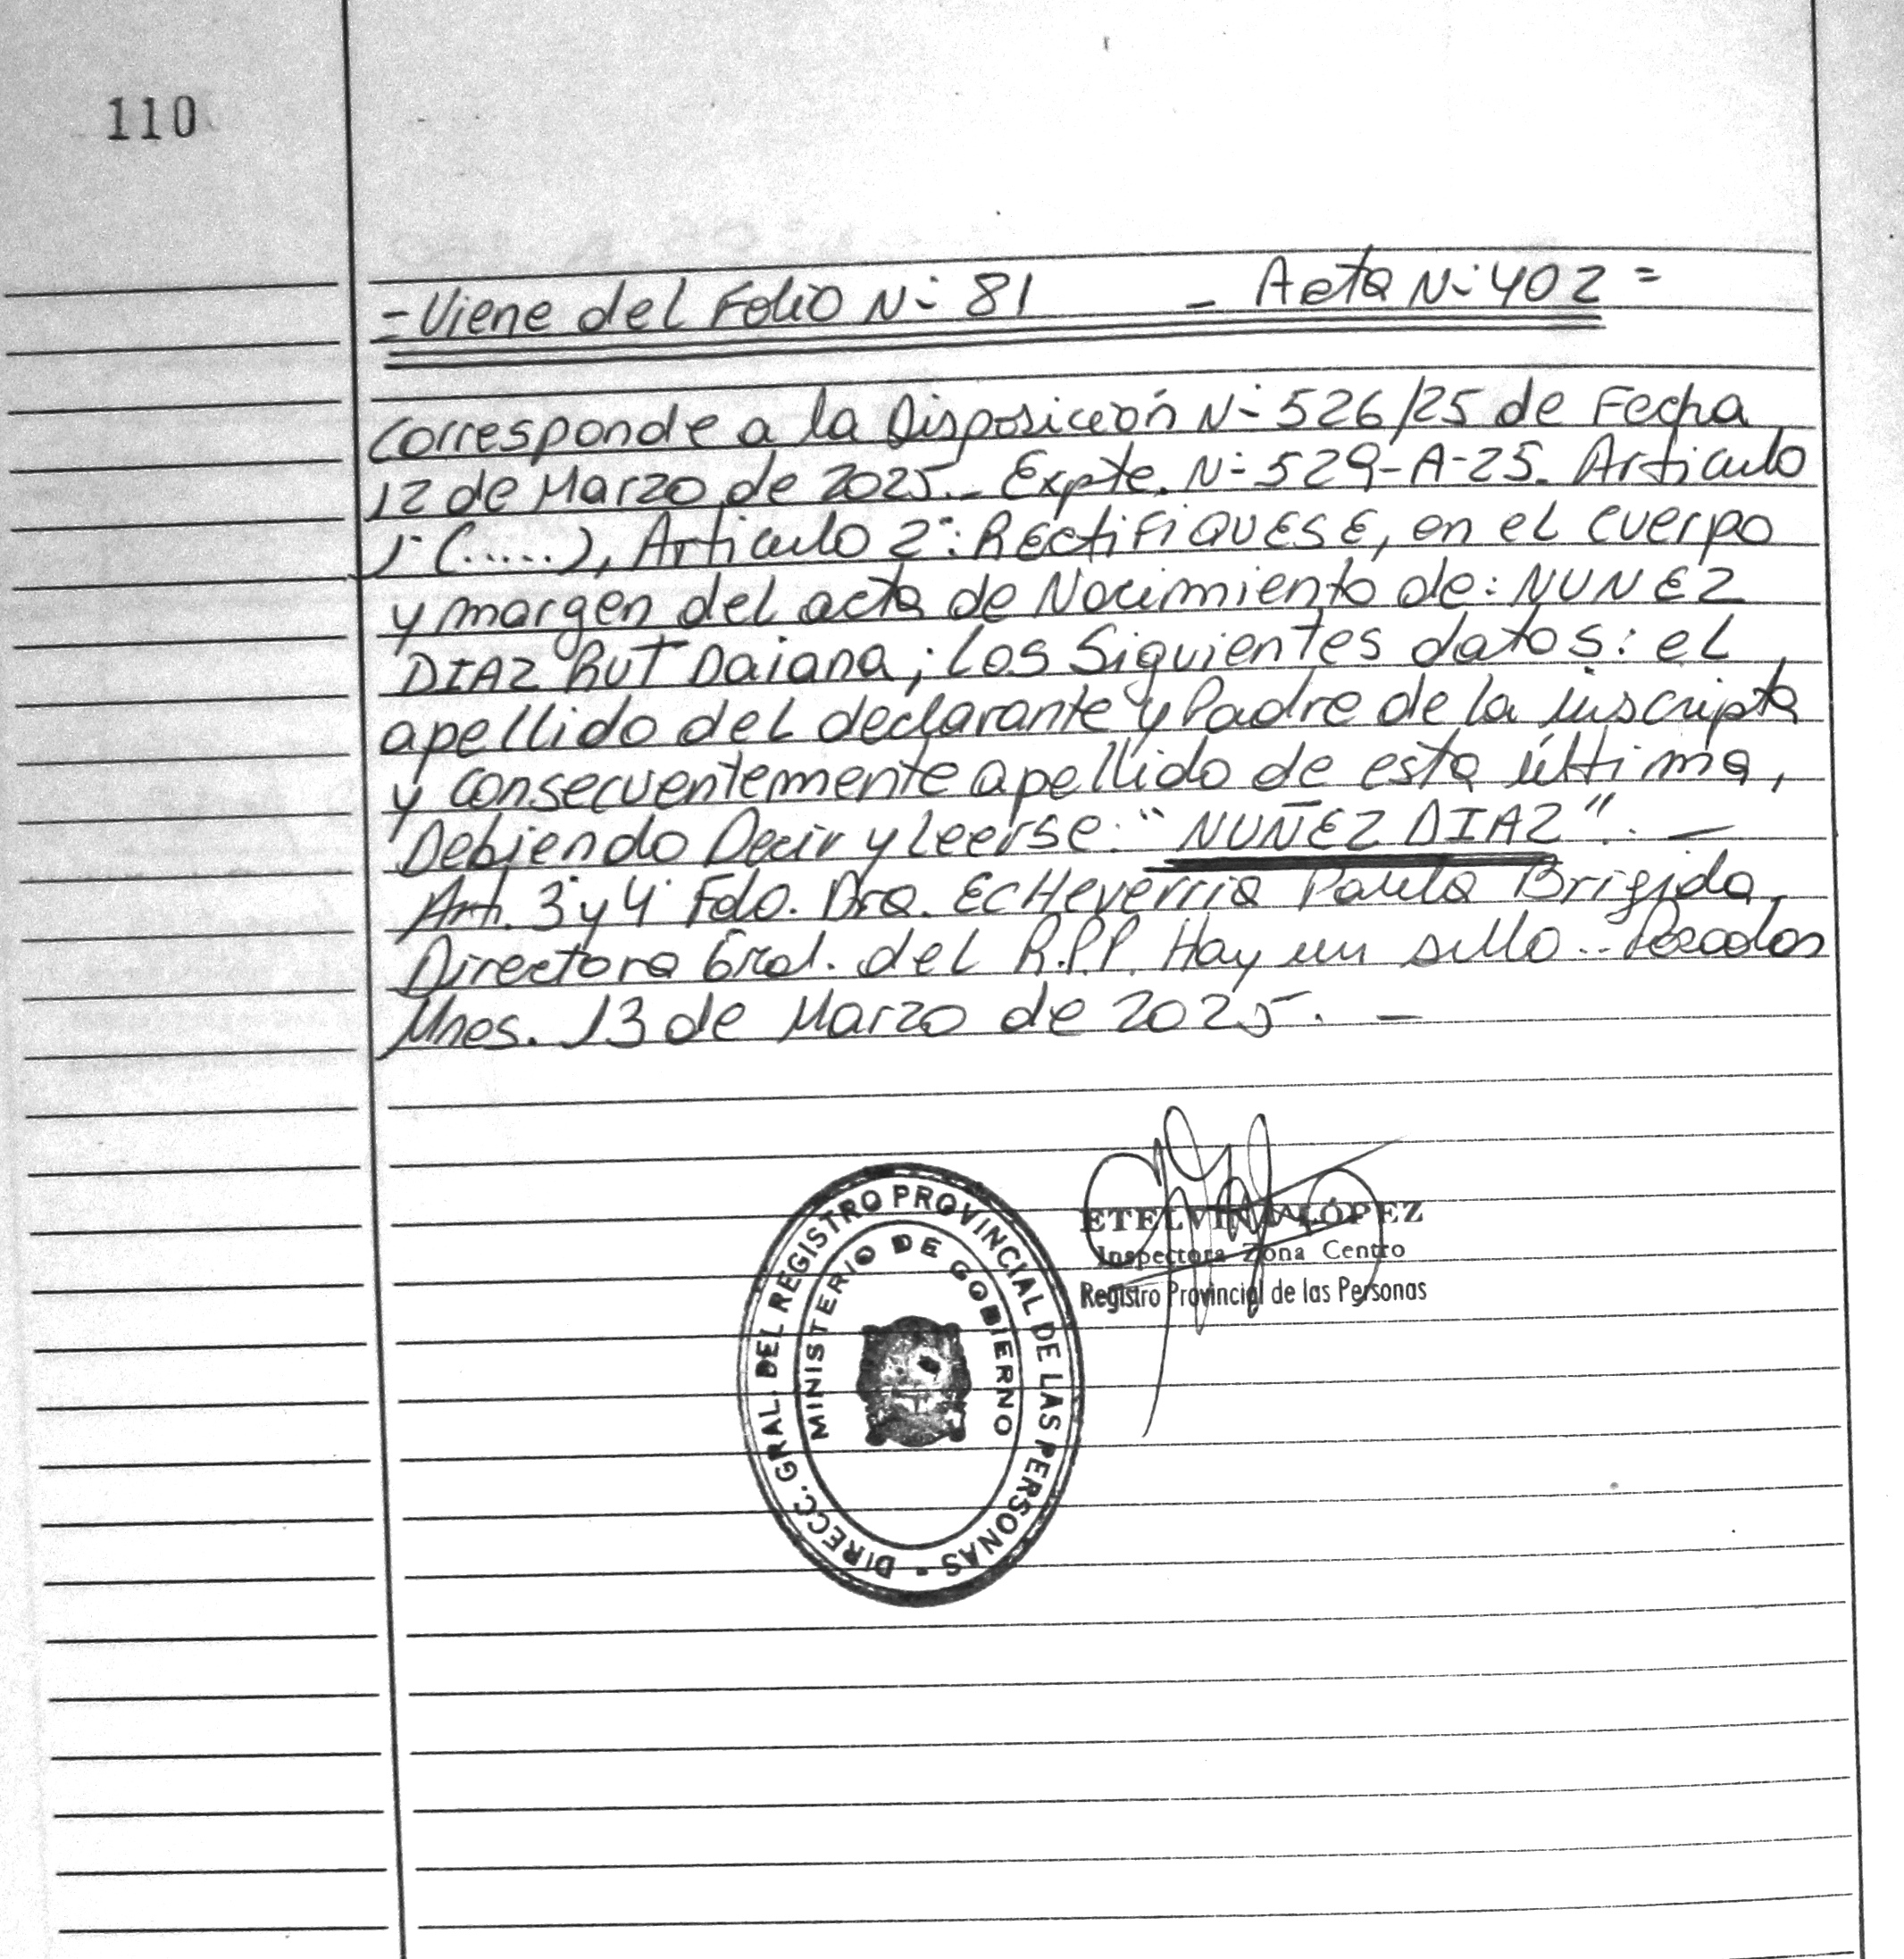 110
=Viene del Folio N- 81 - Acta N-402=
Corresponde a la Disposición N- 526/25 de Fecha
12 de Marzo de 2025.- Expte. N- 529-A-25. Articulo
1° (.....), Articulo 2°: RECTIFIQUESE, en el cuerpo
y margen del acta de Nacimiento de: NUNEZ
DIAZ RUT Daiana; los Siguientes datos: el
apellido del declarante y Padre de la inscripta
y consecuentemente apellido de esta última,
Debiendo Decir y Leerse: "NUÑEZ DIAZ". -
Art. 3° y 4° Fdo. Dra. EcHeverria Paula Brigida
Directora Gral. del R.P.P. Hay un sello.. Posadas
Mnes. 13 de Marzo de 2025. -
ETELVINA LÓPEZ
Inspectora Zona Centro
Registro Provincial de las Personas
DIRECC. GRAL. DEL REGISTRO PROVINCIAL DE LAS PERSONAS -
MINISTERIO DE GOBIERNO